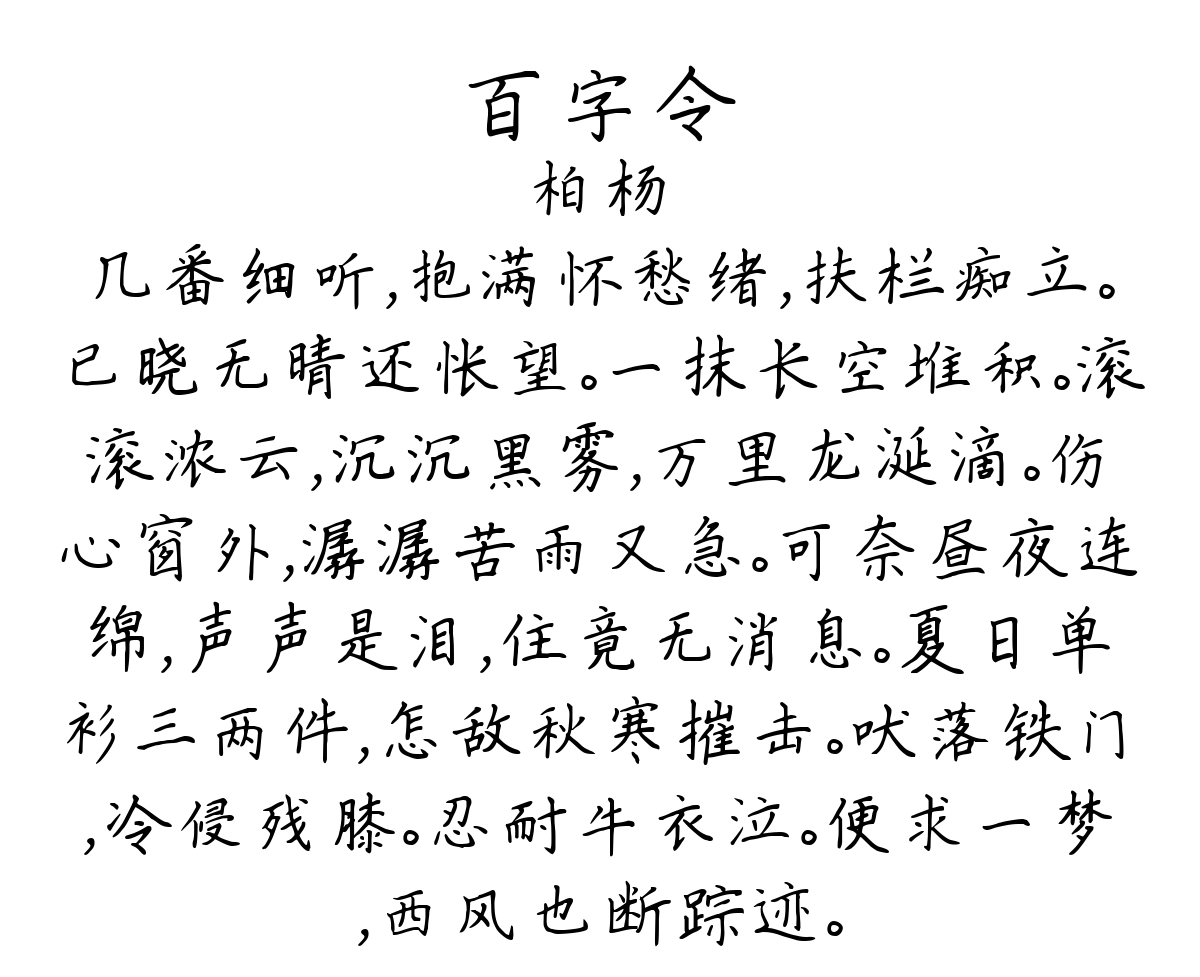 百字令
柏杨
几番细听,抱满怀愁绪,扶栏痴立。
已晓无晴还怅望。一抹长空堆积。滚
滚浓云,沉沉黑雾,万里龙涎滴。伤
心窗外,潺潺苦雨又急。可奈昼夜连
绵,声声是泪,住竟无消息。夏日单
衫三两件,怎敌秋寒摧击。吠落铁门
,冷侵残膝。忍耐牛衣泣。便求一梦
,西风也断踪迹。